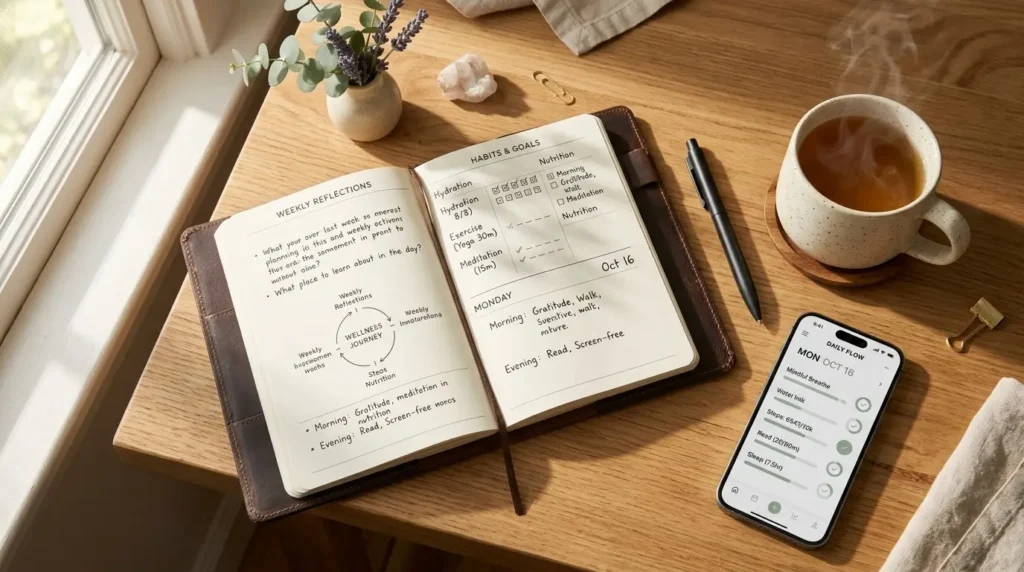 WEEKLY REFLECTIONS
• What your over last week so onerest
planning in this and weekly activons
thur ard the sannement in pront to
without oine?
• What place to learn about in the day?
Weekly
Reflections
Weekly
WELLNESS
JOURNEY
Weekly
Steps
Nutrition
• Morning: Gratitude, meditation in
nutrition
• Evening: Read, Screen-free
HABITS & GOALS
Hydration
Hydration
8/8)
Exercise
(Yoga 30m)
Meditation
(15m)
Nutrition
Morning
walk
Meditation
Nutrition
Oct 16
MONDAY
Morning: Gratitude, Walk,
walk,
Evening: Read, Screen-free
9:41
DAILY FLOW
MON OCT 16
Mindful Breathe
Water
Steps:
Read
Sleep (7.5hr)